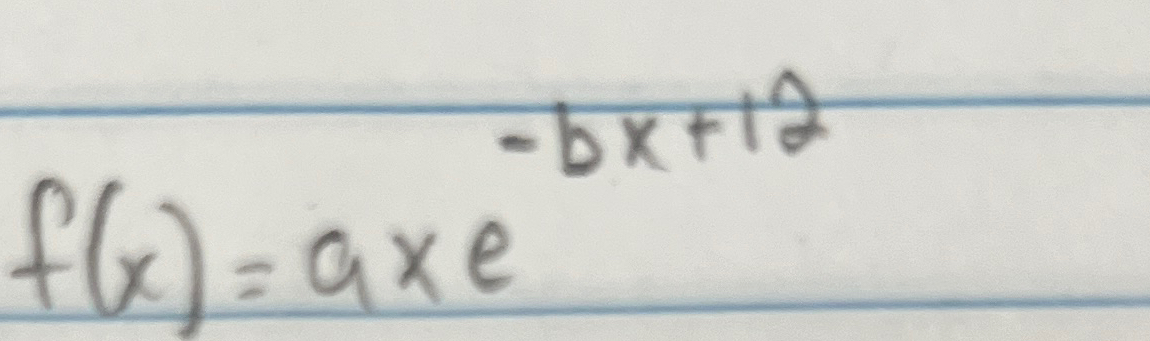 f(x) = axe^{-bx+12}